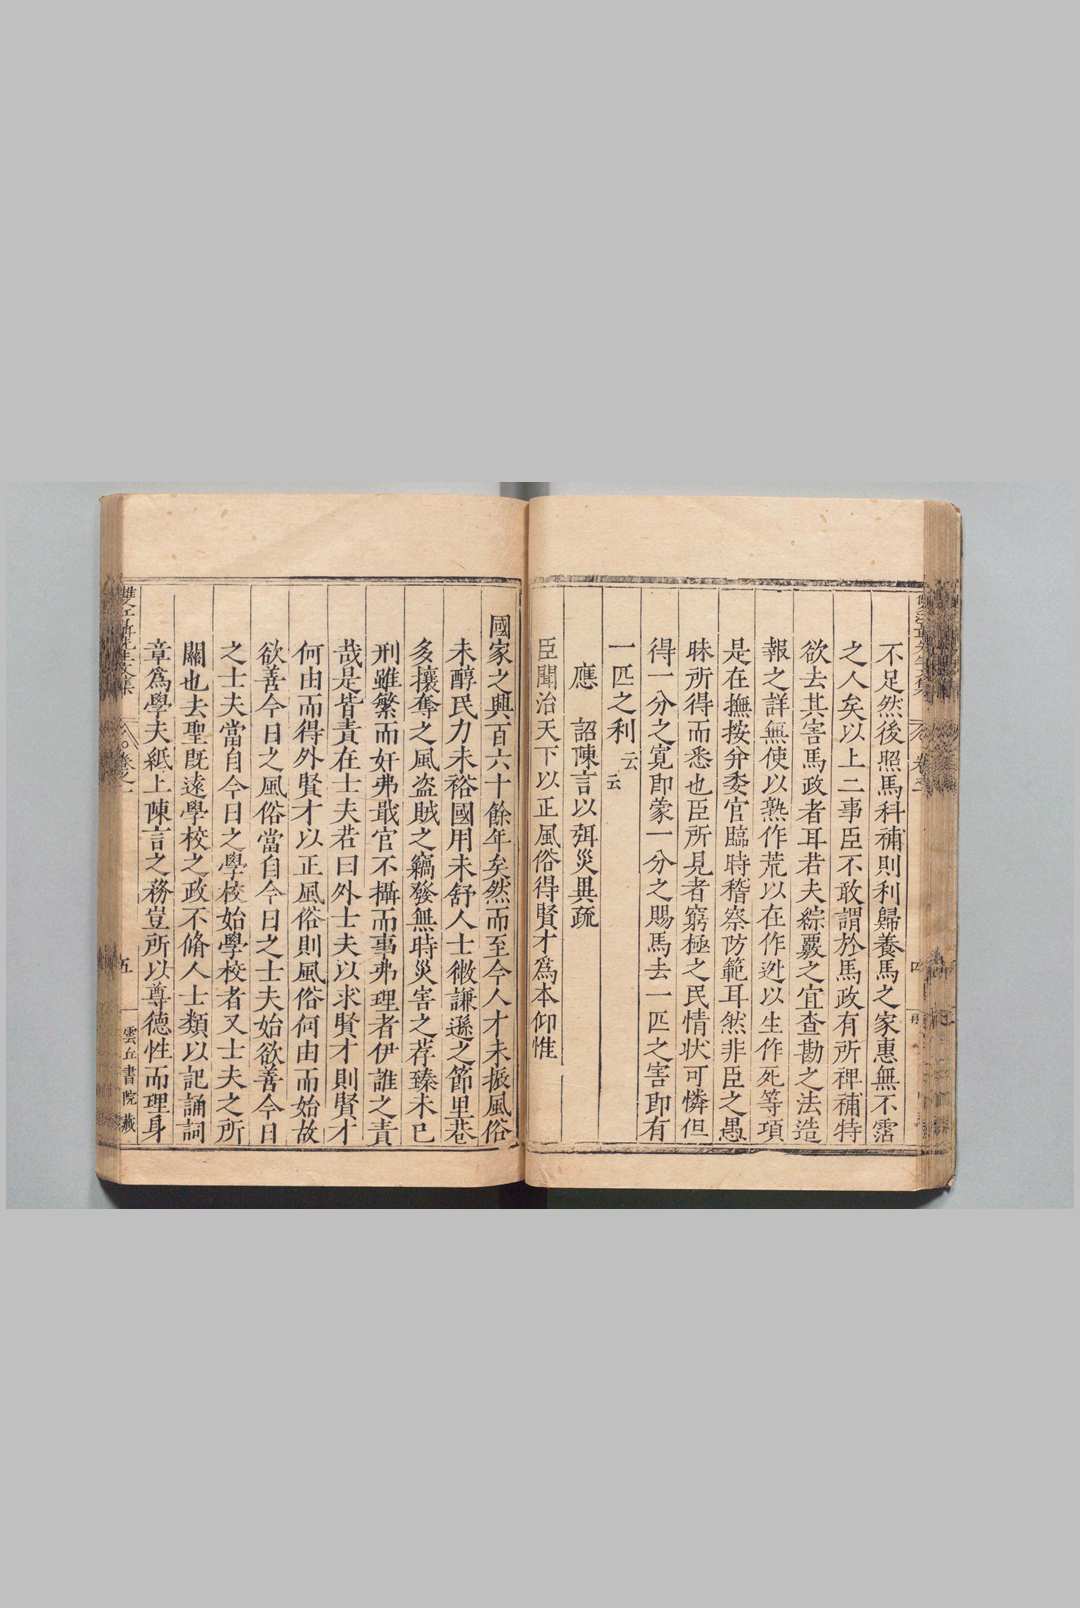 不足然後照馬科補則利歸養馬之家惠無不霑
之人矣以上二事臣不敢謂於馬政有所裨補特
欲去其害馬政者耳若夫綜覈之宜查勘之法造
報之詳無使以熟作荒以在作迯以生作死等項
是在撫按分委官臨時稽察防範耳然非臣之愚
昧所得而悉也臣所見者窮極之民情狀可憐但
得一分之寬即蒙一分之賜馬去一匹之害即有
一匹之利云云
應　詔陳言以弭災異疏
臣聞治天下以正風俗得賢才為本仰惟
國家之興百六十餘年矣然而至今人才未振風俗
未醇民力未裕國用未舒人士微謙遜之節里巷
多攘奪之風盗賊之竊發無時災害之荐臻未已
刑雖繁而奸弗戢官不構而事弗理者伊誰之責
哉是皆責在士夫若曰外士夫以求賢才則賢才
何由而得外賢才以正風俗則風俗何由而始故
欲善今日之風俗當自今日之士夫始欲善今日
之士夫當自今日之學校始學校者又士夫之所
關也去聖既遠學校之政不脩人士類以記誦詞
章為學夫紙上陳言之務豈所以尊德性而理身
雙江聶先生文集
卷之一
五
雲丘書院藏